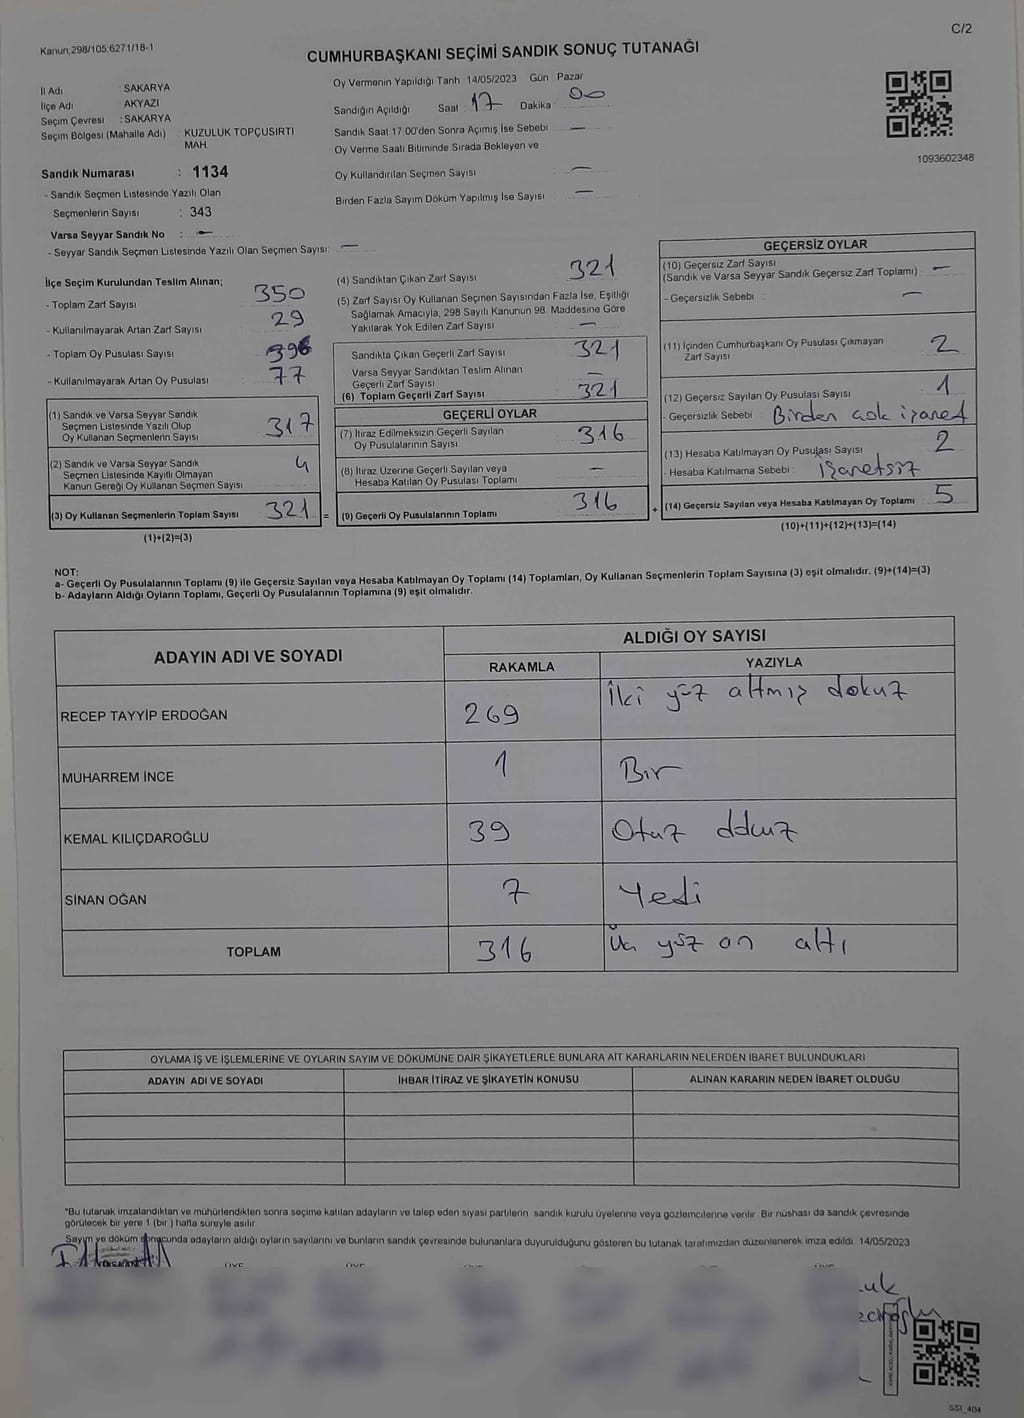 C/2
Kanun,298/105,6271/18-1
CUMHURBAŞKANI SEÇİMİ SANDIK SONUÇ TUTANAĞI
İl Adı : SAKARYA
İlçe Adı : AKYAZI
Seçim Çevresi : SAKARYA
Seçim Bölgesi (Mahalle Adı) : KUZULUK TOPÇUSIRTI
MAH.
Sandık Numarası : 1134
- Sandık Seçmen Listesinde Yazılı Olan
Seçmenlerin Sayısı : 343
Varsa Seyyar Sandık No : —
- Seyyar Sandık Seçmen Listesinde Yazılı Olan Seçmen Sayısı: —
Oy Vermenin Yapıldığı Tarih : 14/05/2023 Gün : Pazar
Sandığın Açıldığı Saat : 17 Dakika : 00
Sandık Saat 17.00'den Sonra Açımış İse Sebebi : —
Oy Verme Saati Bitiminde Sırada Bekleyen ve
Oy Kullandırılan Seçmen Sayısı : —
Birden Fazla Sayım Döküm Yapılmış İse Sayısı : —
1093602348
İlçe Seçim Kurulundan Teslim Alınan;
- Toplam Zarf Sayısı : 350
- Kullanılmayarak Artan Zarf Sayısı : 29
- Toplam Oy Pusulası Sayısı :
- Kullanılmayarak Artan Oy Pusulası : 77
(1) Sandık ve Varsa Seyyar Sandık
Seçmen Listesinde Yazılı Olup
Oy Kullanan Seçmenlerin Sayısı 317
(2) Sandık ve Varsa Seyyar Sandık
Seçmen Listesinde Kayıtlı Olmayan
Kanun Gereği Oy Kullanan Seçmen Sayısı 4
(3) Oy Kullanan Seçmenlerin Toplam Sayısı 321 =
(1)+(2)=(3)
(4) Sandıktan Çıkan Zarf Sayısı : 321
(5) Zarf Sayısı Oy Kullanan Seçmen Sayısından Fazla İse, Eşitliği
Sağlamak Amacıyla, 298 Sayılı Kanunun 98. Maddesine Göre
Yakılarak Yok Edilen Zarf Sayısı : —
Sandıkta Çıkan Geçerli Zarf Sayısı 321
Varsa Seyyar Sandıktan Teslim Alınan
Geçerli Zarf Sayısı —
(6) Toplam Geçerli Zarf Sayısı 321
GEÇERLİ OYLAR
(7) İtiraz Edilmeksizin Geçerli Sayılan
Oy Pusulalarının Sayısı 316
(8) İtiraz Üzerine Geçerli Sayılan veya
Hesaba Katılan Oy Pusulası Toplamı —
(9) Geçerli Oy Pusulalarının Toplamı 316 +
GEÇERSİZ OYLAR
(10) Geçersiz Zarf Sayısı
(Sandık ve Varsa Seyyar Sandık Geçersiz Zarf Toplamı) : —
- Geçersizlik Sebebi : —
(11) İçinden Cumhurbaşkanı Oy Pusulası Çıkmayan
Zarf Sayısı 2
(12) Geçersiz Sayılan Oy Pusulası Sayısı 1
- Geçersizlik Sebebi : Birden çok işaret
(13) Hesaba Katılmayan Oy Pusulası Sayısı 2
- Hesaba Katılmama Sebebi : İşaretsiz
(14) Geçersiz Sayılan veya Hesaba Katılmayan Oy Toplamı 5
(10)+(11)+(12)+(13)=(14)
NOT:
a- Geçerli Oy Pusulalarının Toplamı (9) ile Geçersiz Sayılan veya Hesaba Katılmayan Oy Toplamı (14) Toplamları, Oy Kullanan Seçmenlerin Toplam Sayısına (3) eşit olmalıdır. (9)+(14)=(3)
b- Adayların Aldığı Oyların Toplamı, Geçerli Oy Pusulalarının Toplamına (9) eşit olmalıdır.
ADAYIN ADI VE SOYADI ALDIĞI OY SAYISI
RAKAMLA YAZIYLA
RECEP TAYYİP ERDOĞAN 269 İki yüz altmış dokuz
MUHARREM İNCE 1 Bir
KEMAL KILIÇDAROĞLU 39 Otuz dokuz
SİNAN OĞAN 7 Yedi
TOPLAM 316 Üç yüz on altı
OYLAMA İŞ VE İŞLEMLERİNE VE OYLARIN SAYIM VE DÖKÜMÜNE DAİR ŞİKAYETLERLE BUNLARA AİT KARARLARIN NELERDEN İBARET BULUNDUKLARI
ADAYIN ADI VE SOYADI İHBAR İTİRAZ VE ŞİKAYETİN KONUSU ALINAN KARARIN NEDEN İBARET OLDUĞU
"Bu tutanak imzalandıktan ve mühürlendikten sonra seçime katılan adayların ve talep eden siyasi partilerin sandık kurulu üyelerine veya gözlemcilerine verilir. Bir nüshası da sandık çevresinde
görülecek bir yere 1 (bir ) hafta süreyle asılır
Sayım ve döküm sonucunda adayların aldığı oyların sayılarını ve bunların sandık çevresinde bulunanlara duyurulduğunu gösteren bu tutanak tarafımızdan düzenlenerek imza edildi. 14/05/2023
SSI_404